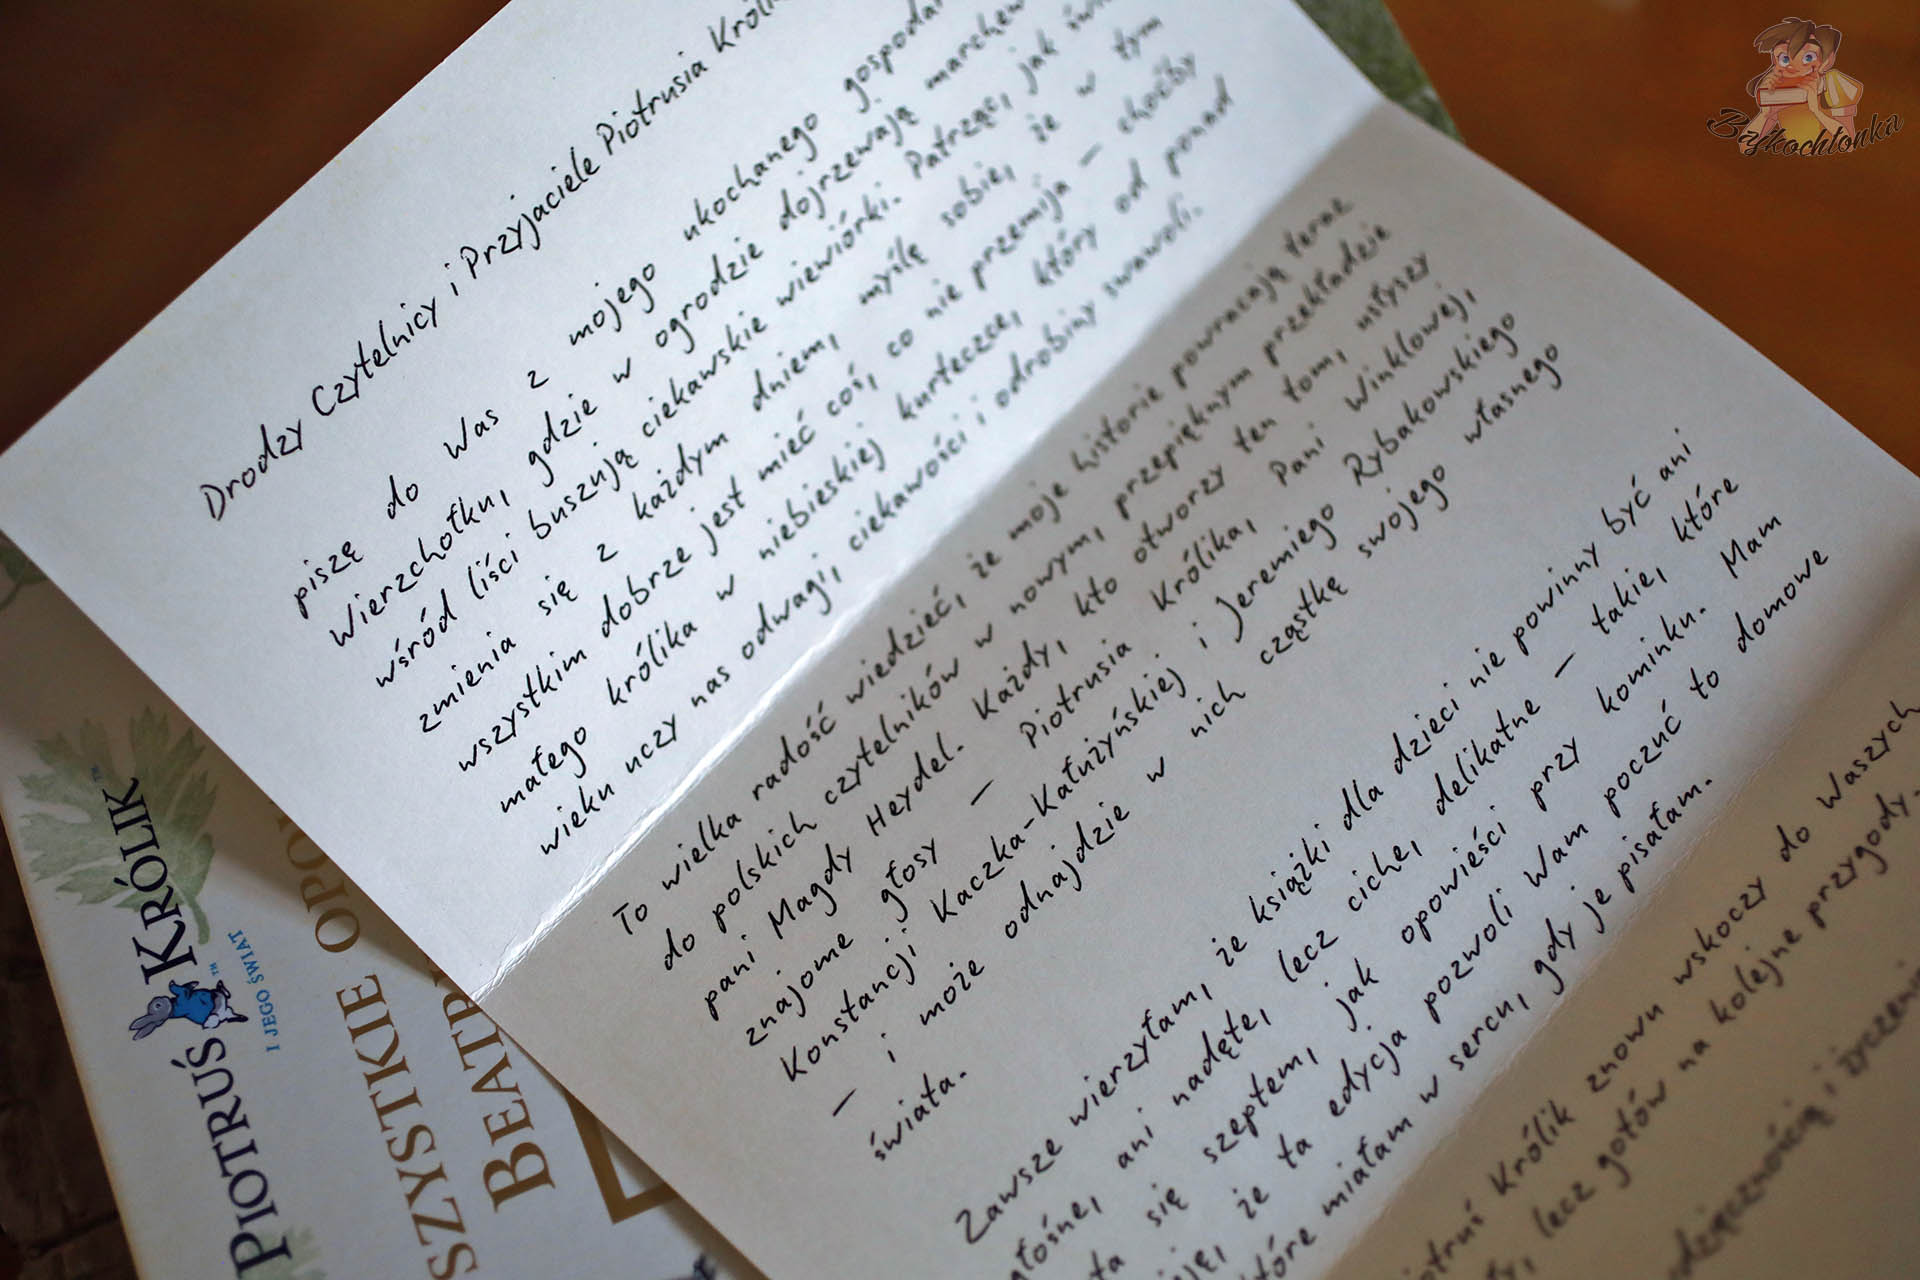 Drodzy Czytelnicy i Przyjaciele Piotrusia
piszę do Was z mojego ukochanego
Wierzchołku, gdzie w ogrodzie dojrzewają
wśród liści buszują ciekawskie wiewiórki. Patrząc, jak
zmienia się z każdym dniem, myślę sobie, że w tym
wszystkim dobrze jest mieć coś, co nie przemija – choćby
małego królika w niebieskiej kurteczce, który od ponad
wieku uczy nas odwagi, ciekawości i odrobiny swawoli.
To wielka radość wiedzieć, że moje historie powracają teraz
do polskich czytelników w nowym, przepięknym przekładzie
pani Magdy Heydel. Każdy, kto otworzy ten tom, usłyszy
znajome głosy – Piotrusia Królika, Pani Winklowej,
Konstancji Kaczka-Kałużyńskiej i Jeremiego Rybakowskiego
– i może odnajdzie w nich cząstkę swojego własnego
świata.
Zawsze wierzyłam, że książki dla dzieci nie powinny być ani
ani nadęte, lecz ciche, delikatne – takie, które
się szeptem, jak opowieści przy kominku. Mam
że ta edycja pozwoli Wam poczuć to domowe
miałam w sercu, gdy je pisałam.
Królik znowu wskoczy do Waszych
lecz gotów na kolejne przygody.
i
PIOTRUŚ KRÓLIK™
I JEGO ŚWIAT™
Bajkochłonka